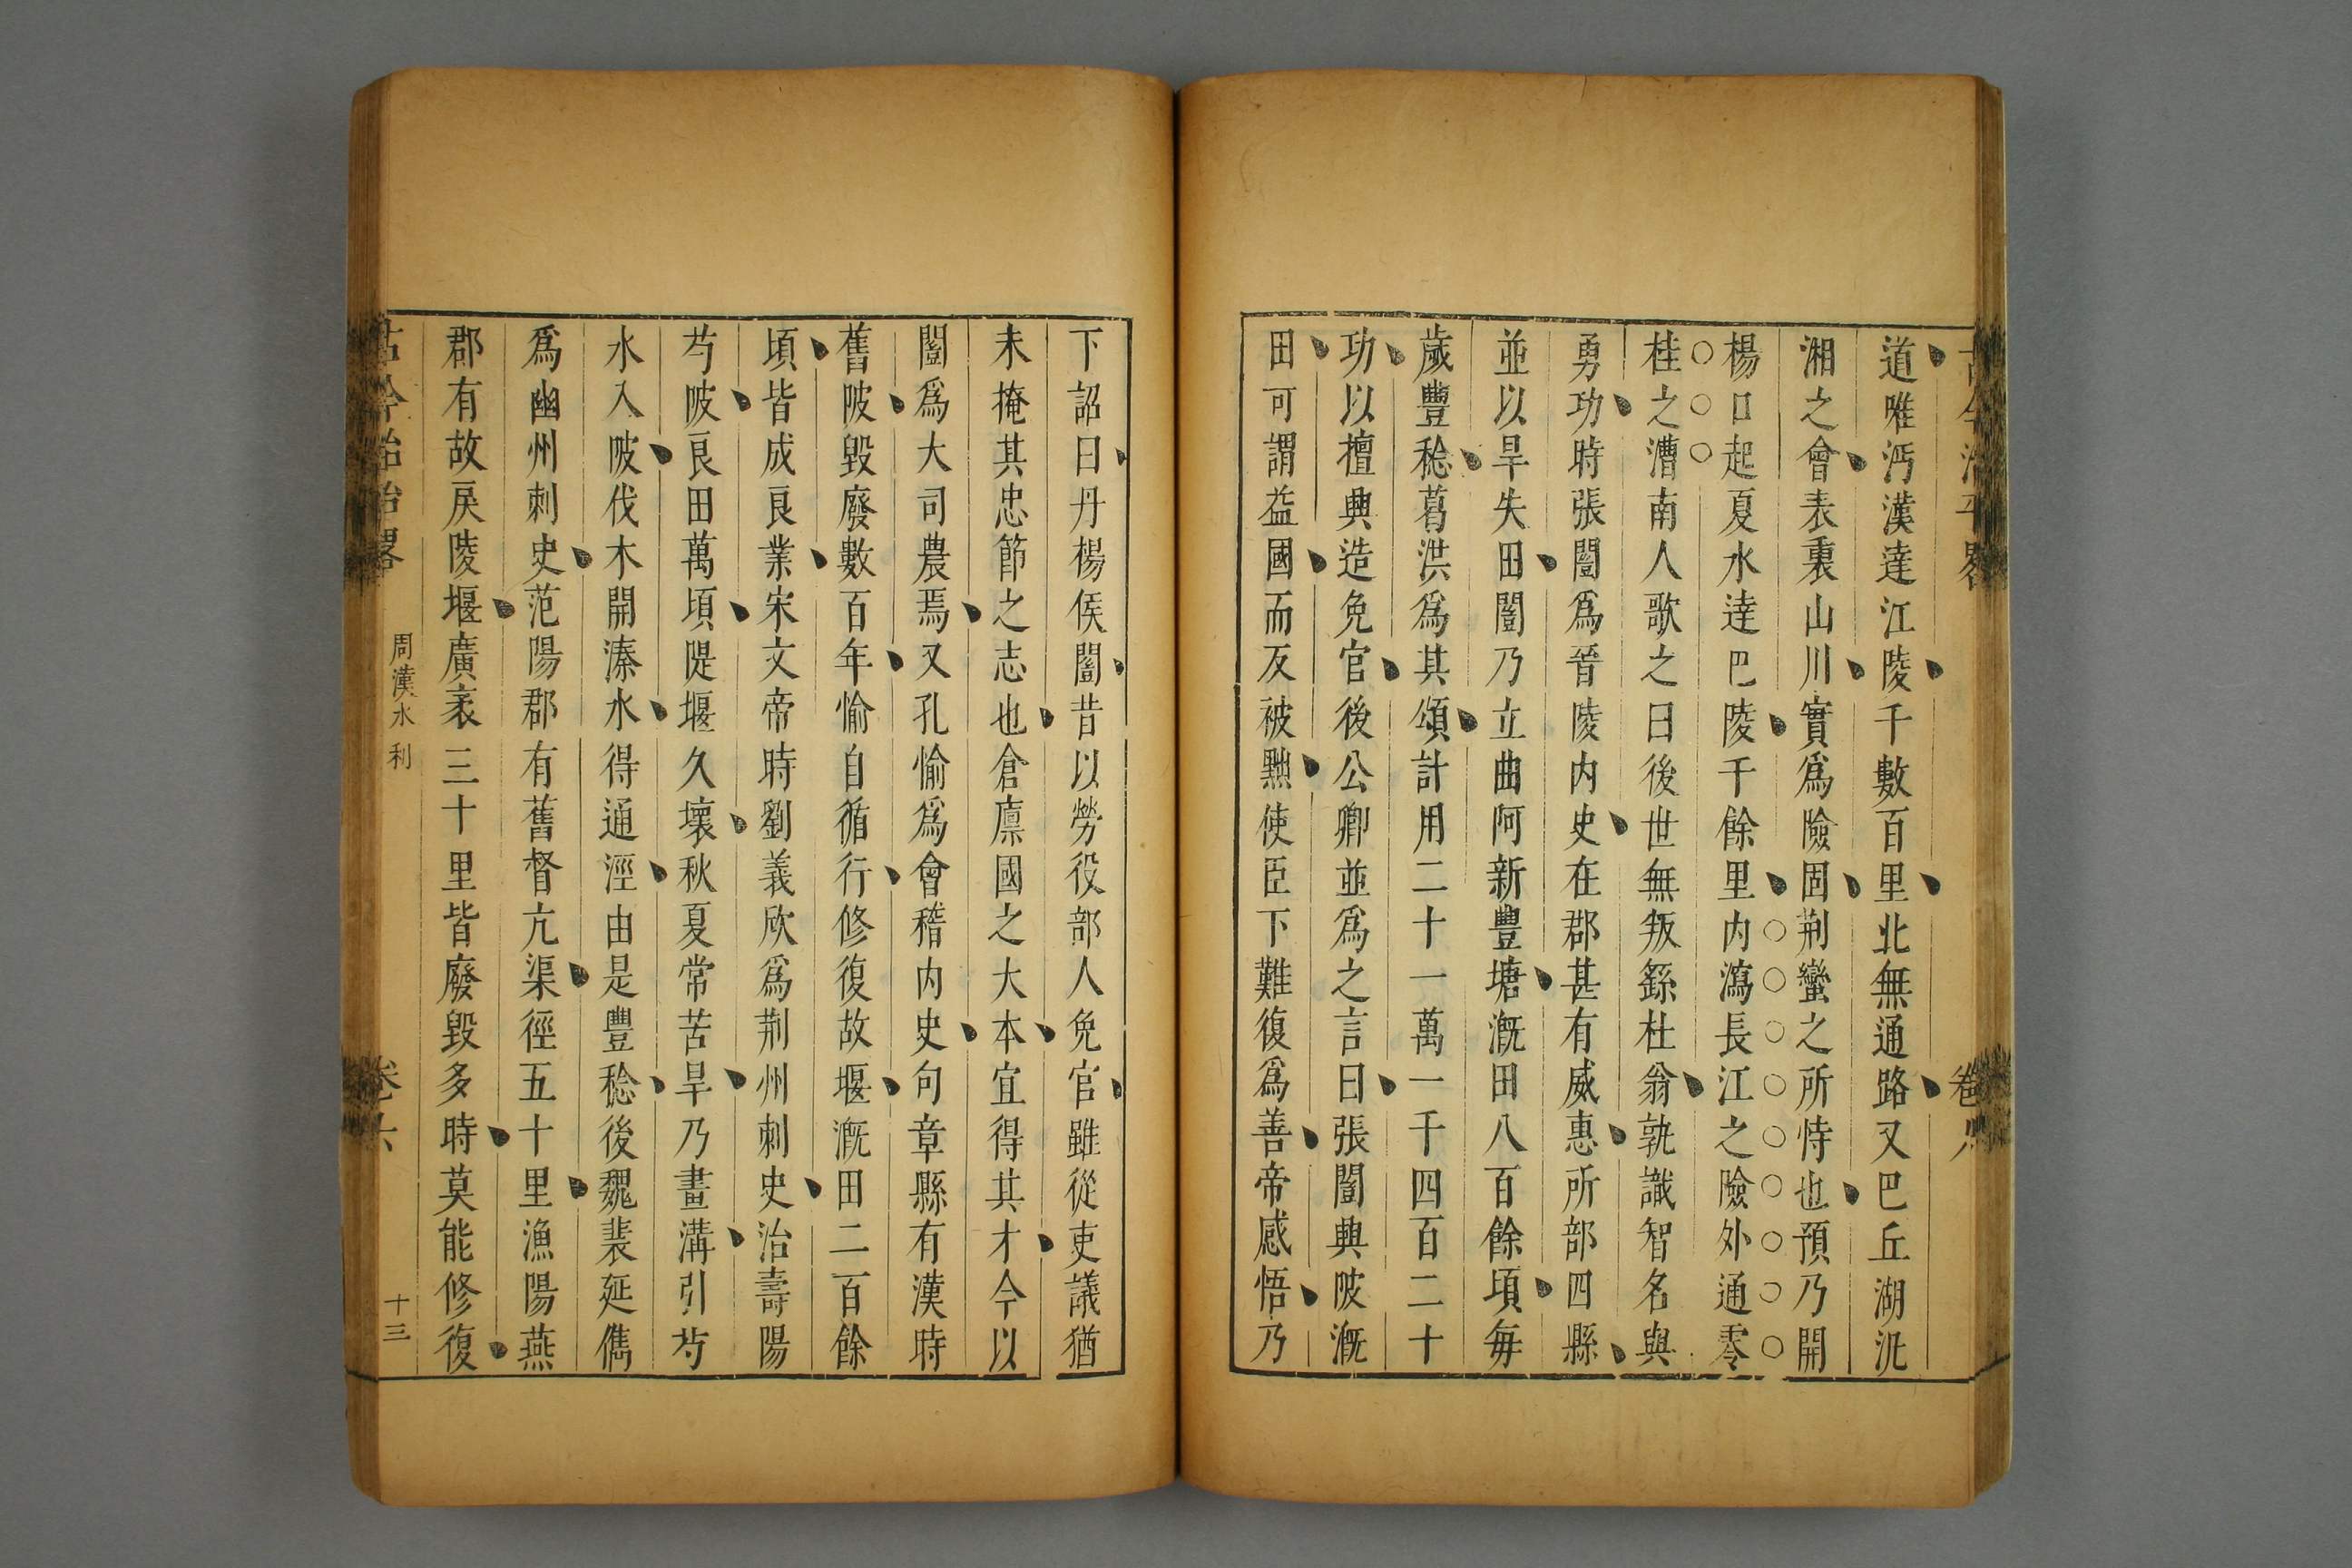 道唯沔漢達江陵千數百里北無通路又巴丘湖沅
湘之會表裏山川實爲險固荆蠻之所恃也預乃開
楊口起夏水達巴陵千餘里内瀉長江之險外通零
桂之漕南人歌之曰後世無叛繇杜翁孰識智名與
勇功時張闓爲晉陵内史在郡甚有威惠所部四縣
並以旱失田闓乃立曲阿新豐塘漑田八百餘頃每
歲豐稔葛洪爲其頌計用二十一萬一千四百二十
功以擅興造免官後公卿並爲之言曰張闓興陂漑
田可謂益國而反被黜使臣下難復爲善帝感悟乃
下詔曰丹楊侯闓昔以勞役部人免官雖從吏議猶
未掩其忠節之志也倉廪國之大本宜得其才今以
闓爲大司農焉又孔愉爲會稽内史句章縣有漢時
舊陂毀廢數百年愉自循行修復故堰漑田二百餘
頃皆成良業宋文帝時劉義欣爲荆州刺史治壽陽
芍陂良田萬頃隄堰久壞秋夏常苦旱乃畫溝引芍
水入陂伐木開溱水得通涇由是豐稔後魏裴延儁
爲幽州刺史范陽郡有舊督亢渠徑五十里漁陽燕
郡有故戾陵堰廣袤三十里皆廢毀多時莫能修復
周漢水利
卷六
十三